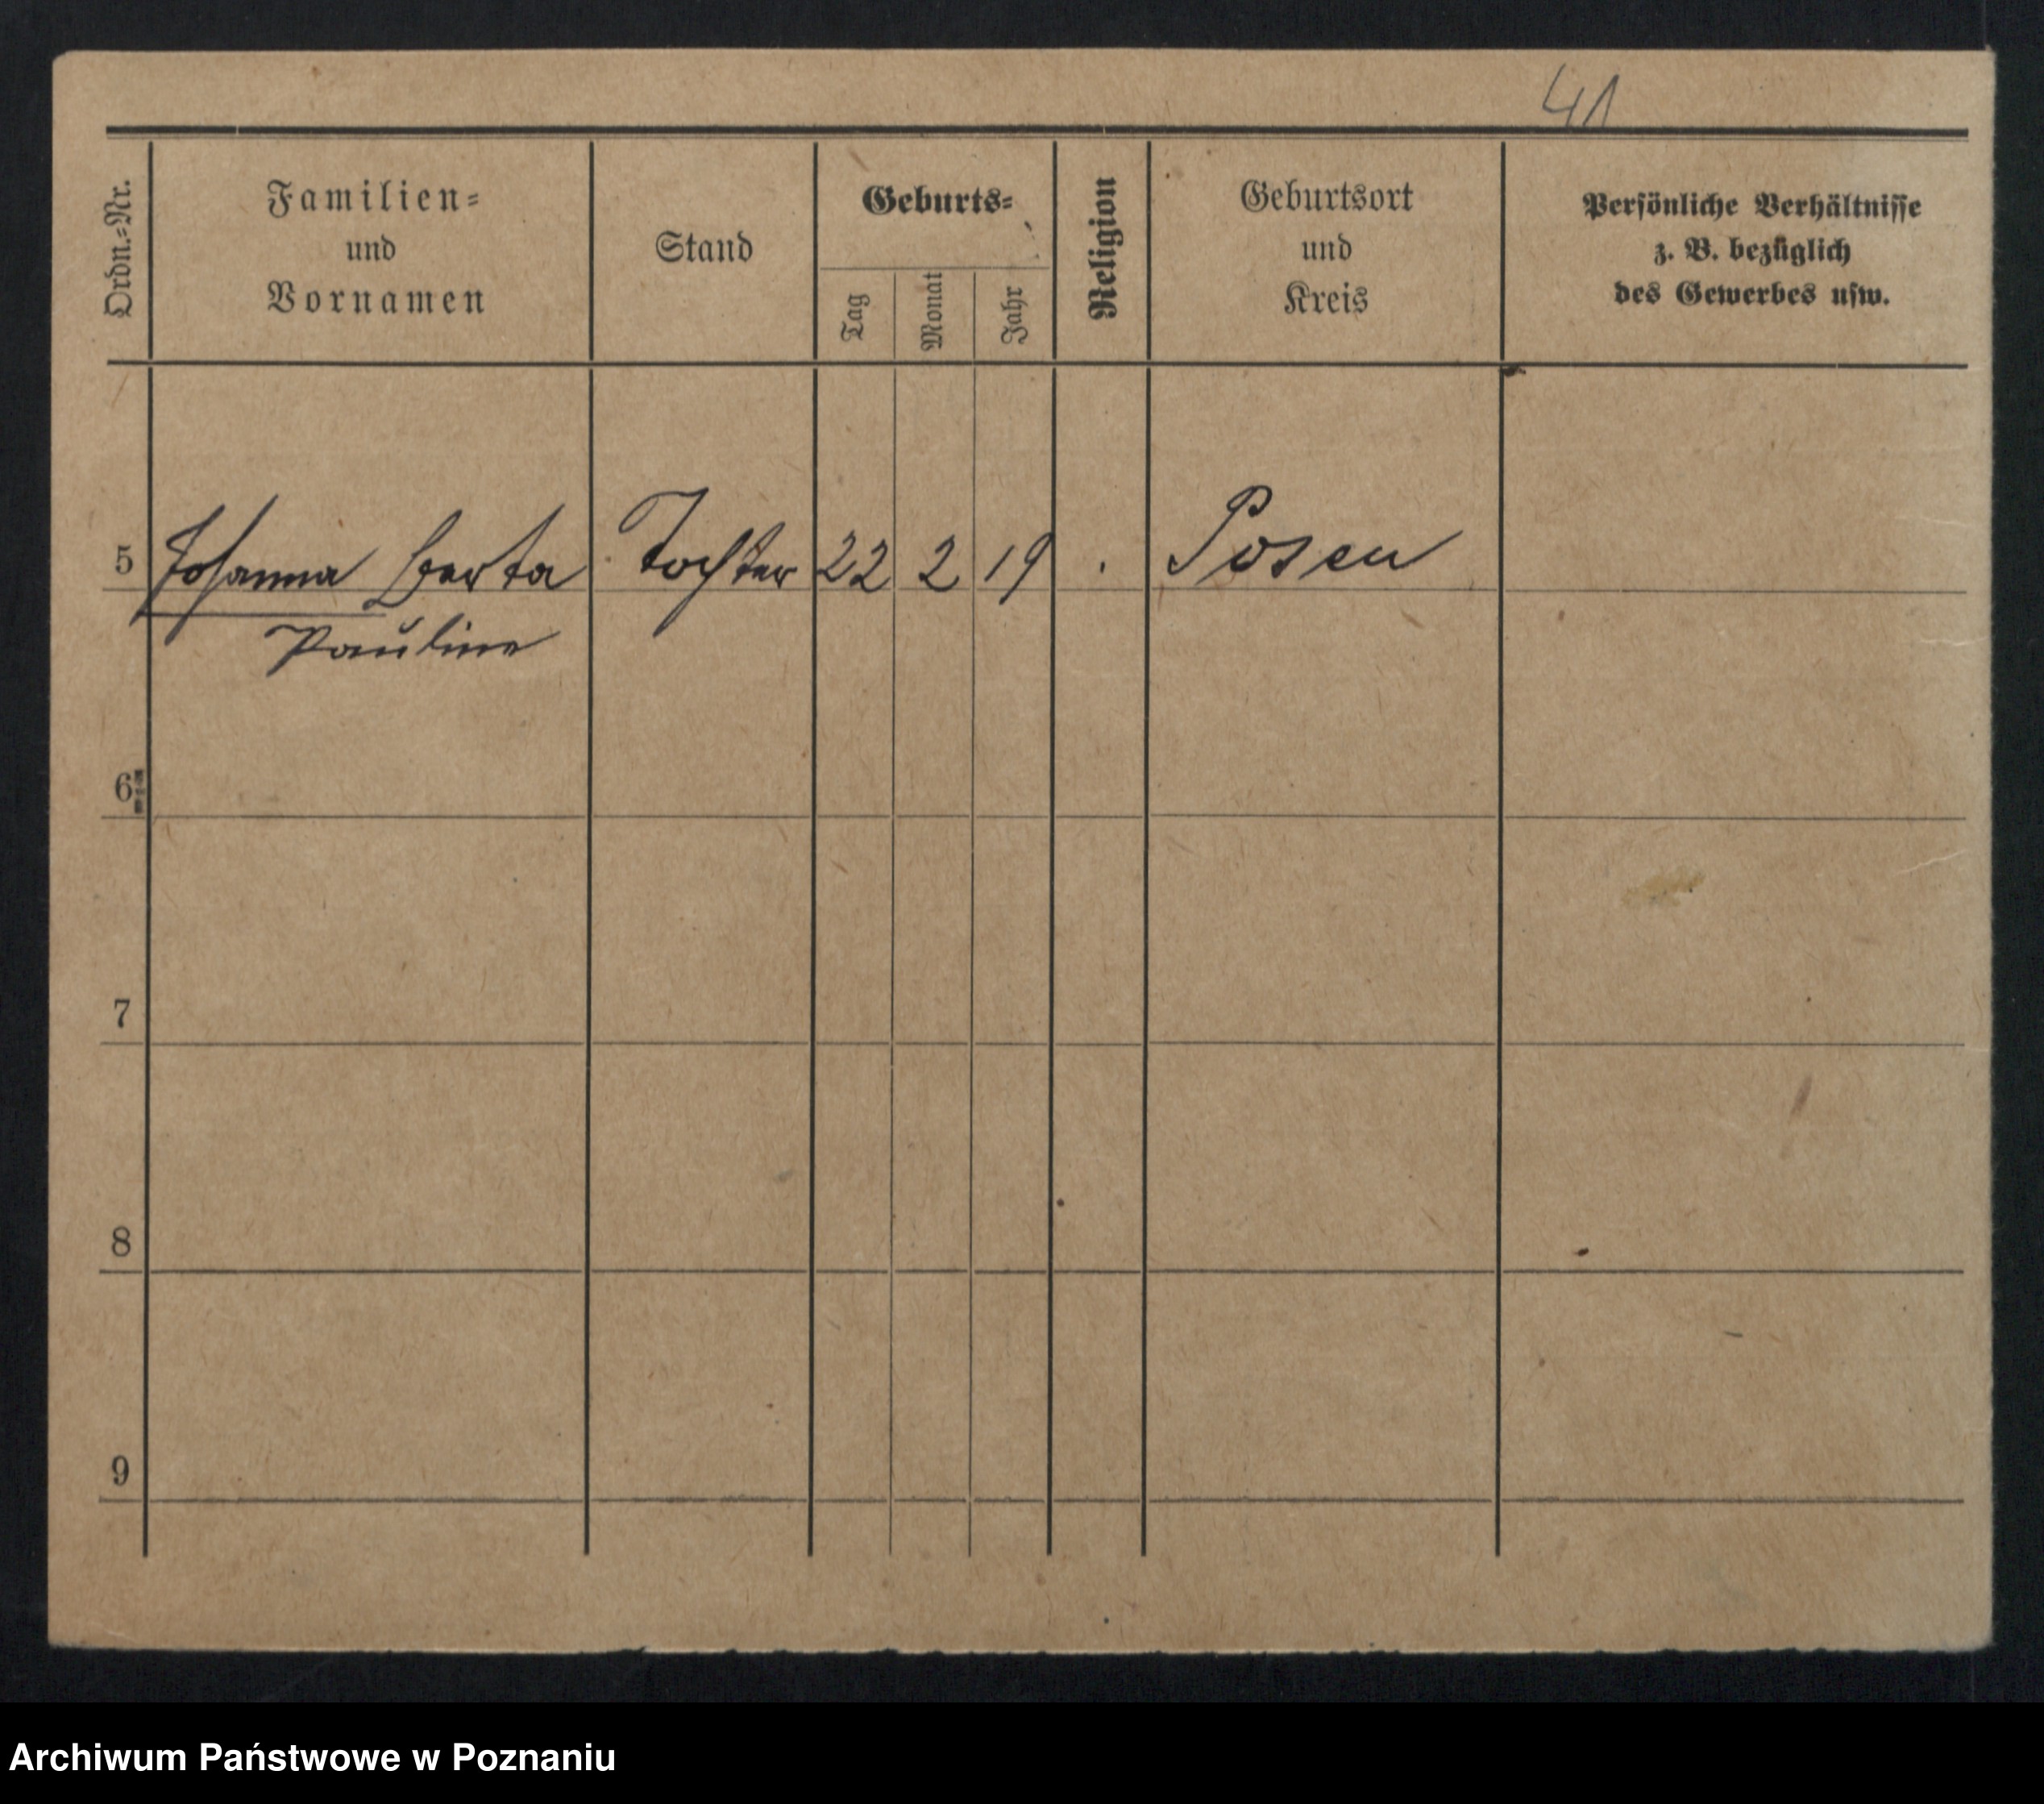 41
Ordn.-Nr.
Familien-
und
Vornamen
Stand
Geburts-
Tag
Monat
Jahr
Religion
Geburtsort
und
Kreis
Persönliche Verhältnisse
z. B. bezüglich
des Gewerbes usw.
5 Johanna Herta Tochter 22 2 19 . Posen
Pauline
6
7
8
9
Archiwum Państwowe w Poznaniu